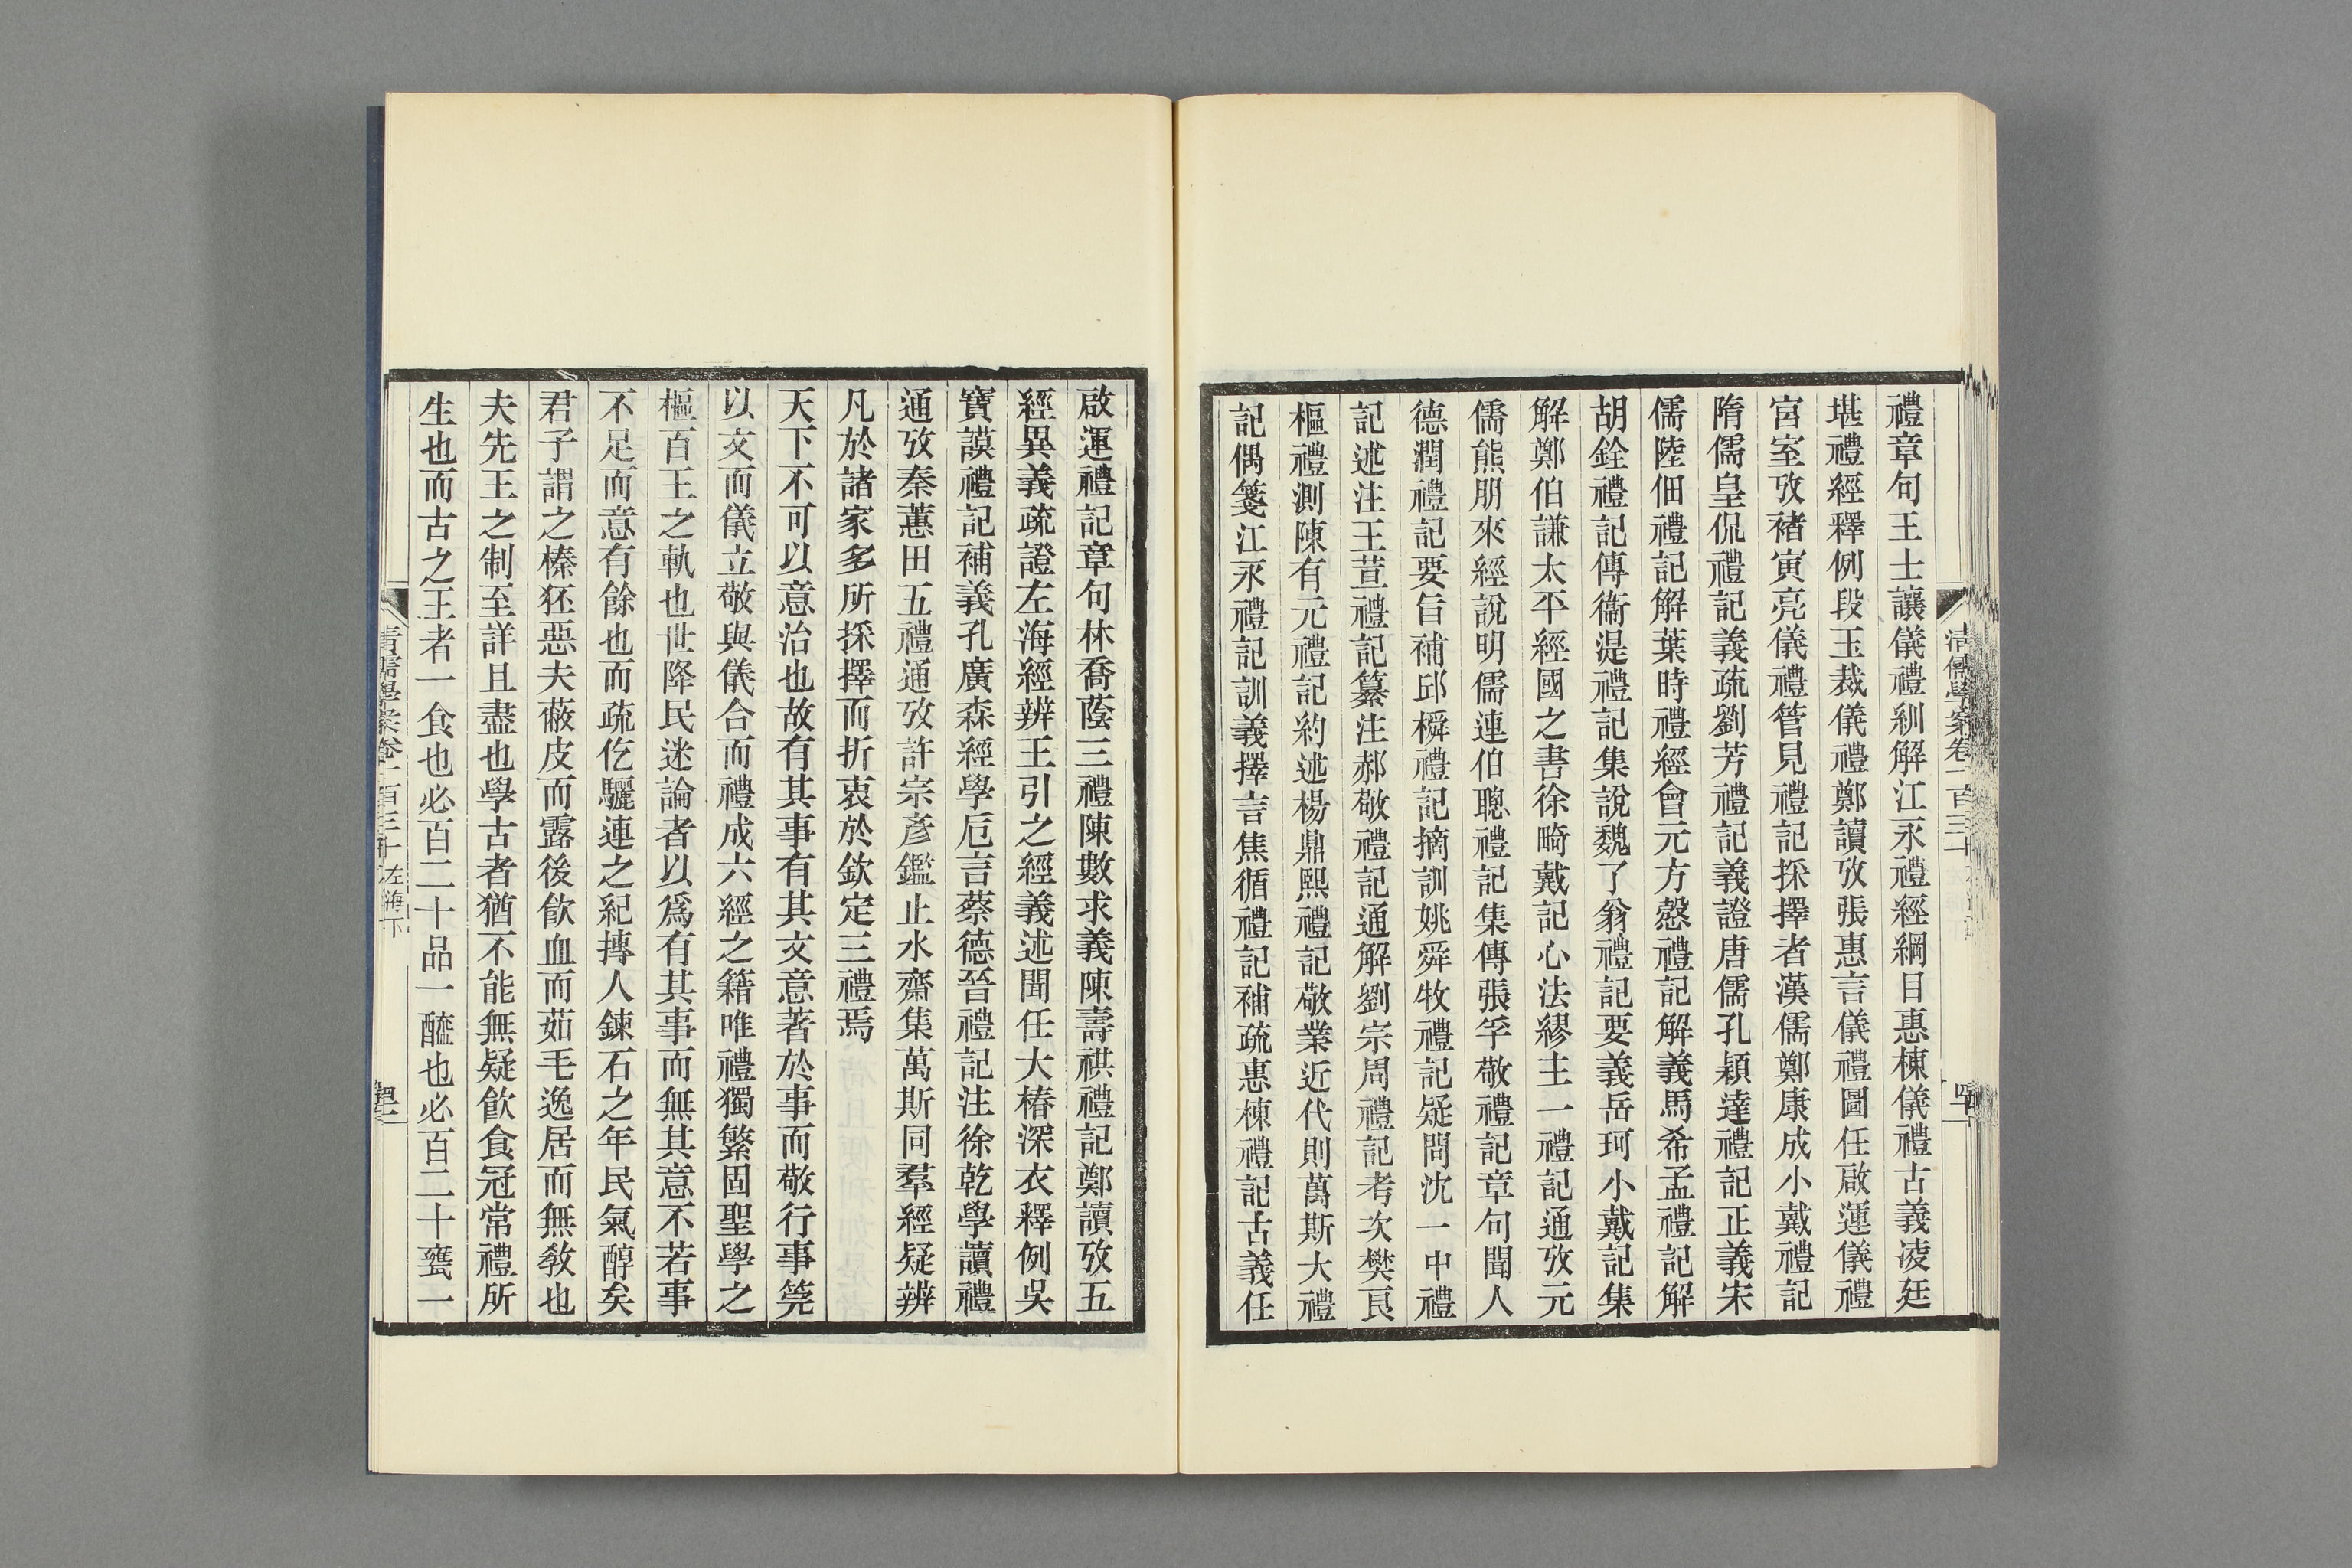 禮章句王士讓儀禮紃解江永禮經綱目惠棟儀禮古義凌廷
堪禮經釋例段玉裁儀禮鄭讀攷張惠言儀禮圖任啟運儀禮
宮室攷褚寅亮儀禮管見禮記採擇者漢儒鄭康成小戴禮記
隋儒皇侃禮記義疏劉芳禮記義證唐儒孔穎達禮記正義宋
儒陸佃禮記解葉時禮經會元方慤禮記解義馬希孟禮記解
胡銓禮記傳衞湜禮記集說魏了翁禮記要義岳珂小戴記集
解鄭伯謙太平經國之書徐畸戴記心法繆主一禮記通攷元
儒熊朋來經說明儒連伯聰禮記集傳張孚敬禮記章句聞人
德潤禮記要旨補邱橓禮記摘訓姚舜牧禮記疑問沈一中禮
記述注王荁禮記纂注郝敬禮記通解劉宗周禮記考次樊良
樞禮測陳有元禮記約述楊鼎熙禮記敬業近代則萬斯大禮
記偶箋江永禮記訓義擇言焦循禮記補疏惠棟禮記古義任
啟運禮記章句林喬蔭三禮陳數求義陳壽祺禮記鄭讀攷五
經異義疏證左海經辨王引之經義述聞任大椿深衣釋例吳
寶謨禮記補義孔廣森經學卮言蔡德晉禮記注徐乾學讀禮
通攷秦蕙田五禮通攷許宗彥鑑止水齋集萬斯同羣經疑辨
凡於諸家多所採擇而折衷於欽定三禮焉
天下不可以意治也故有其事有其文意著於事而敬行事筦
以文而儀立敬與儀合而禮成六經之籍唯禮獨繁固聖學之
樞百王之軌也世降民迷論者以爲有其事而無其意不若事
不足而意有餘也而疏仡驪連之紀摶人鍊石之年民氣醇矣
君子謂之榛狉惡夫蔽皮而露後飲血而茹毛逸居而無敎也
夫先王之制至詳且盡也學古者猶不能無疑飲食冠常禮所
生也而古之王者一食也必百二十品一醯也必百二十罋一
清儒學案卷一百三十 左海下